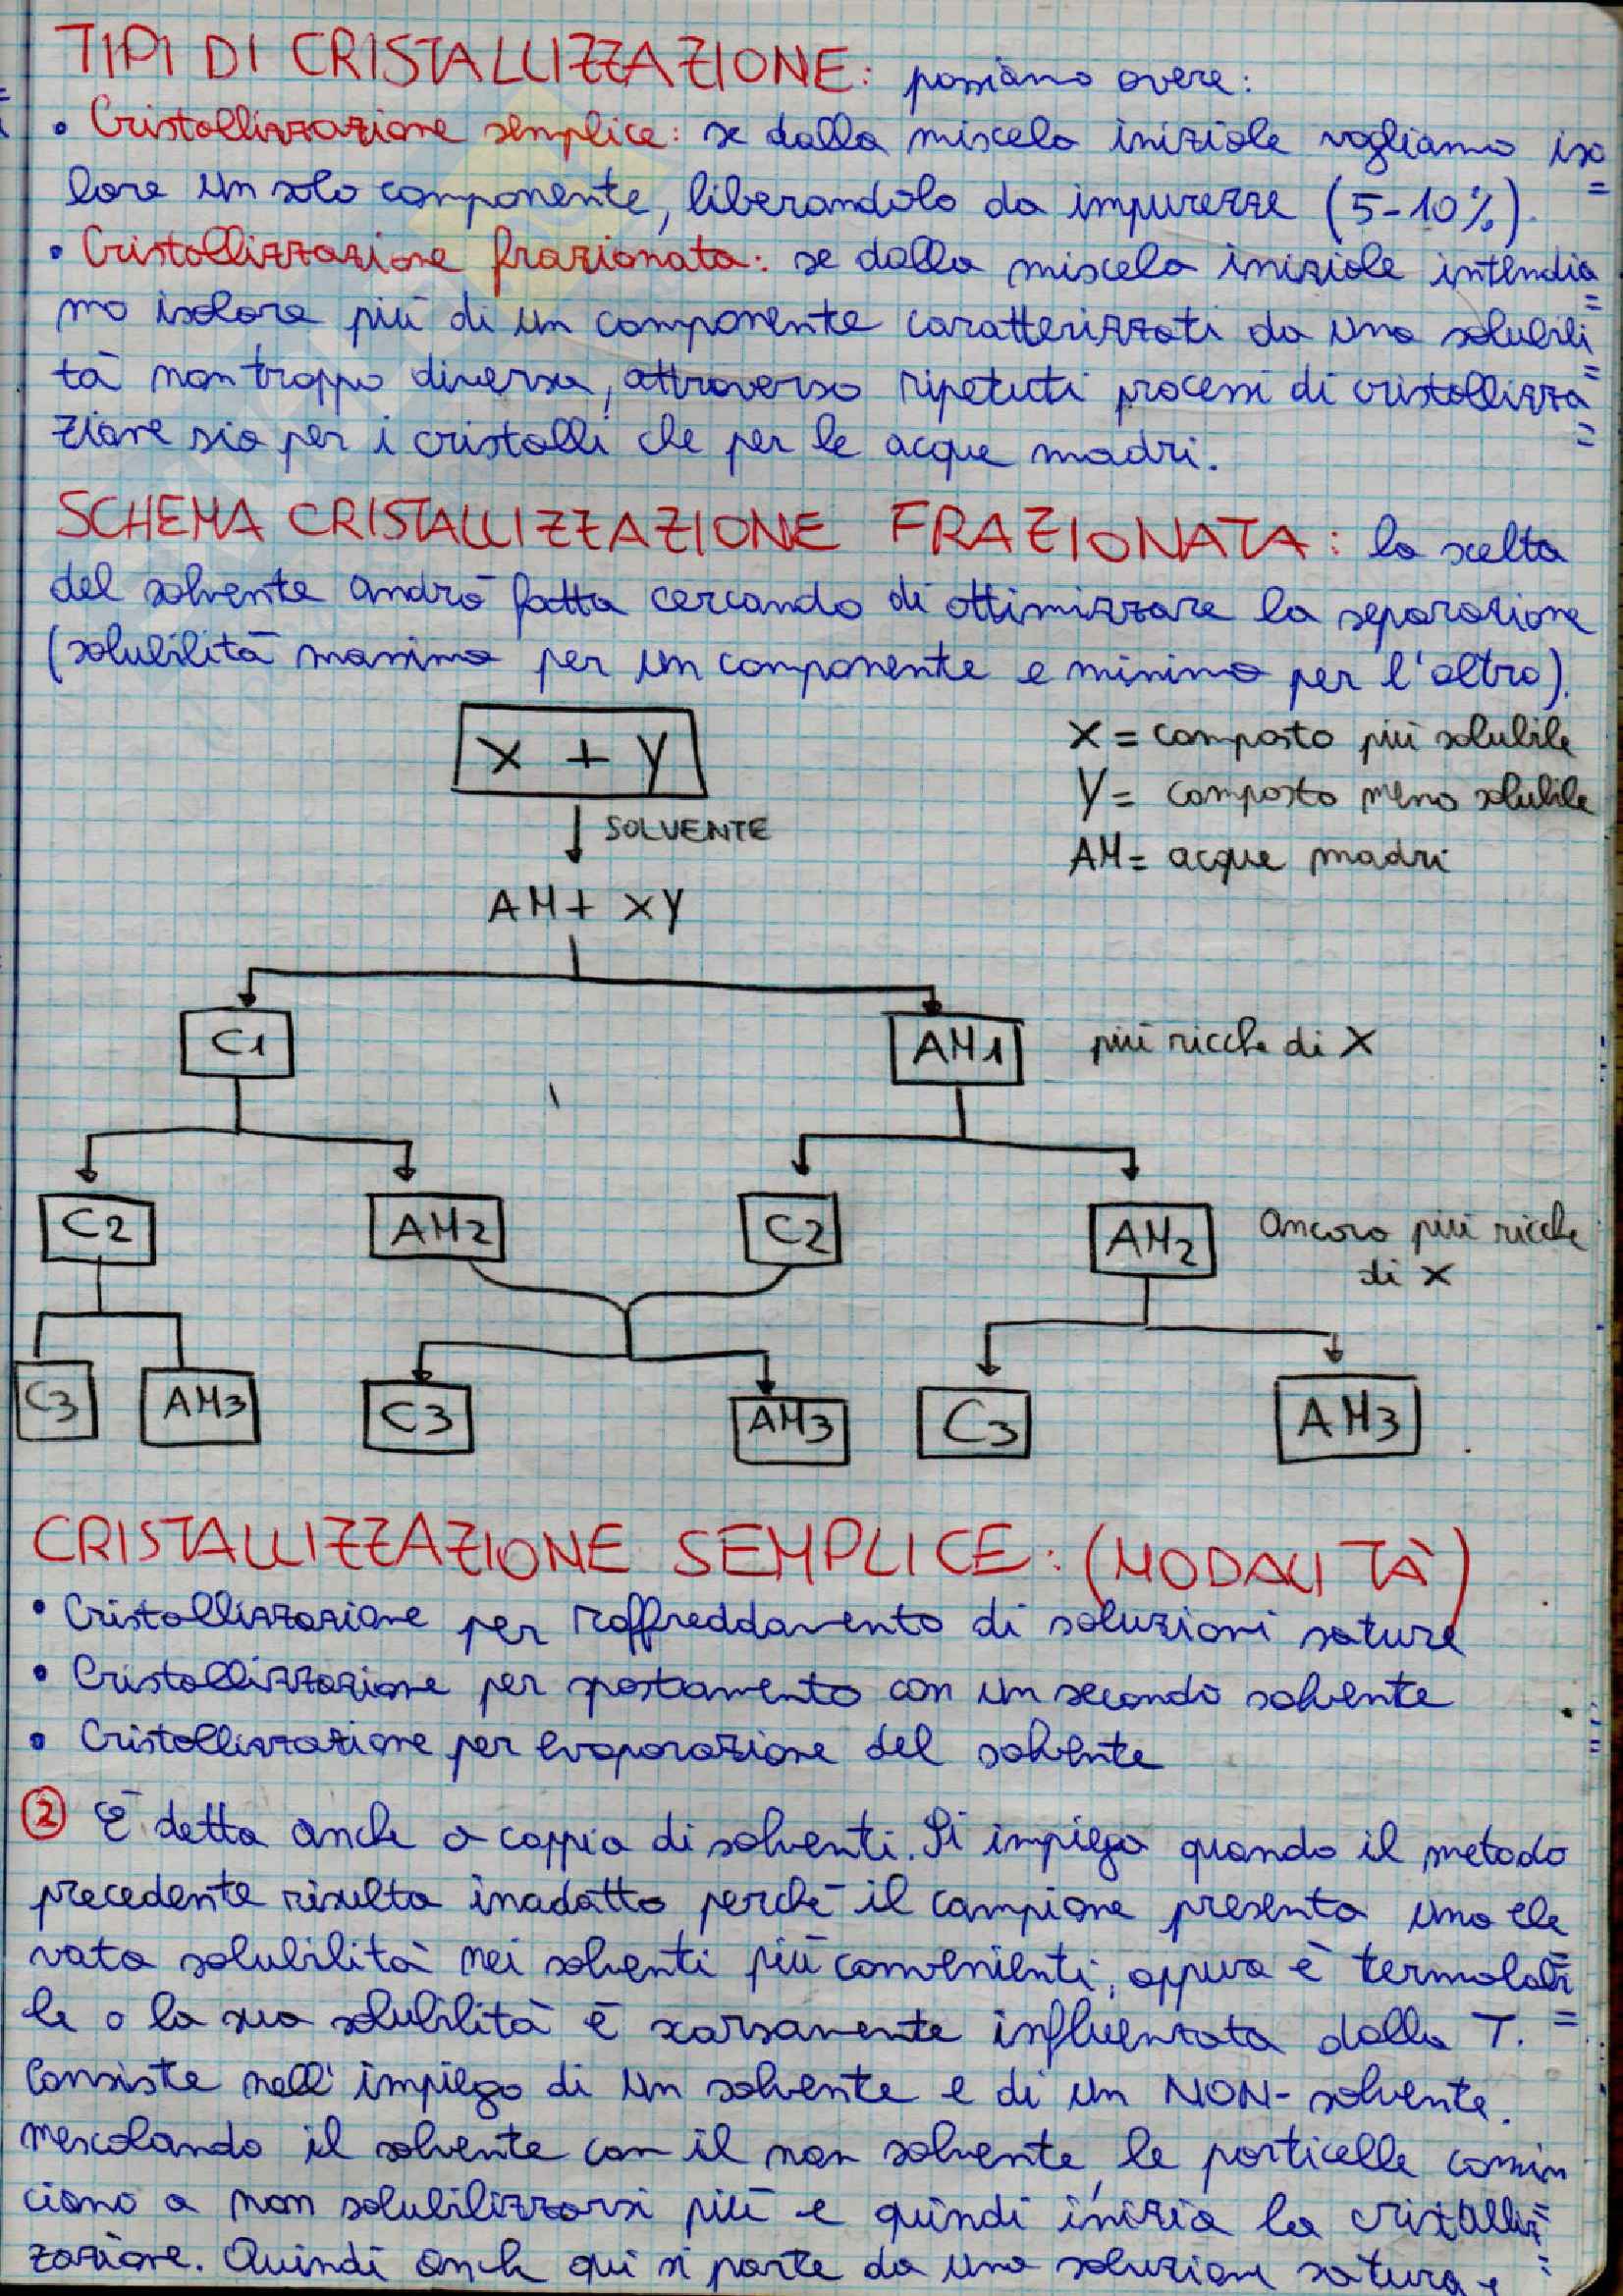 TIPI DI CRISTALLIZZAZIONE: possiamo avere:
• Cristallizzazione semplice: se dalla miscela iniziale vogliamo iso=
lare un solo componente, liberandolo da impurezze (5-10%).
• Cristallizzazione frazionata: se dalla miscela iniziale intendia=
mo isolare più di un componente caratterizzati da una solubili=
tà non troppo diversa, attraverso ripetuti processi di cristallizza=
zione sia per i cristalli che per le acque madri.
SCHEMA CRISTALLIZZAZIONE FRAZIONATA: la scelta
del solvente andrà fatta cercando di ottimizzare la separazione
(solubilità massima per un componente e minima per l'altro).
X + Y
X = composto più solubile
Y = composto meno solubile
SOLVENTE
AM = acque madri
AM + XY
C1
AM1
più ricche di X
C2
AM2
C2
AM2
Ancora più ricche
di X
C3
AM3
C3
AM3
C3
AM3
CRISTALLIZZAZIONE SEMPLICE: (MODALITÀ)
• Cristallizzazione per raffreddamento di soluzioni sature
• Cristallizzazione per spostamento con un secondo solvente
• Cristallizzazione per evaporazione del solvente
② È detta anche a coppia di solventi. Si impiega quando il metodo
precedente risulta inadatto perchè il campione presenta una ele
vata solubilità nei solventi più convenienti, oppure è termolabi=
le o la sua solubilità è scarsamente influenzata dalla T.
Consiste nell'impiego di un solvente e di un NON-solvente.
Mescolando il solvente con il non solvente, le particelle comin
ciano a non solubilizzarsi più e quindi inizia la cristalliz=
zazione. Quindi anche qui si parte da una soluzione satura e